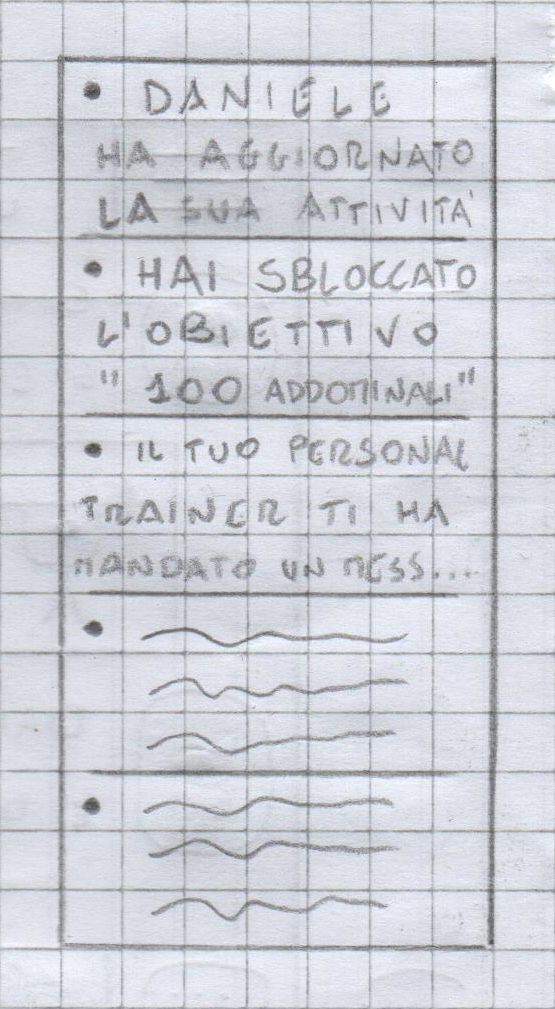 • DANIELE
HA AGGIORNATO
LA SUA ATTIVITA'
• HAI SBLOCCATO
L'OBIETTIVO
"100 ADDOMINALI"
• IL TUO PERSONAL
TRAINER TI HA
MANDATO UN MESS...